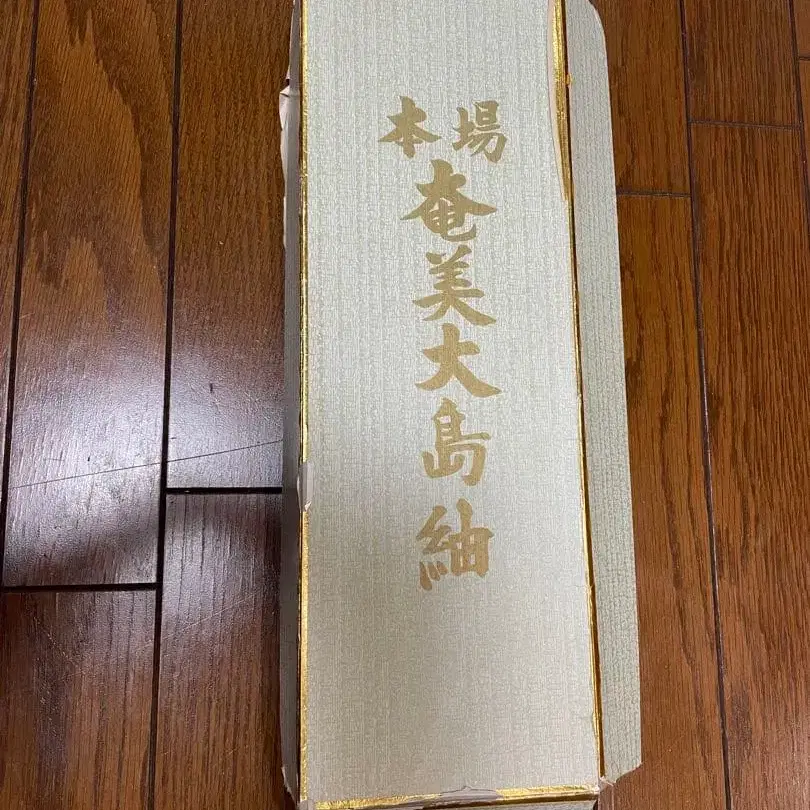 本場
奄美大島紬